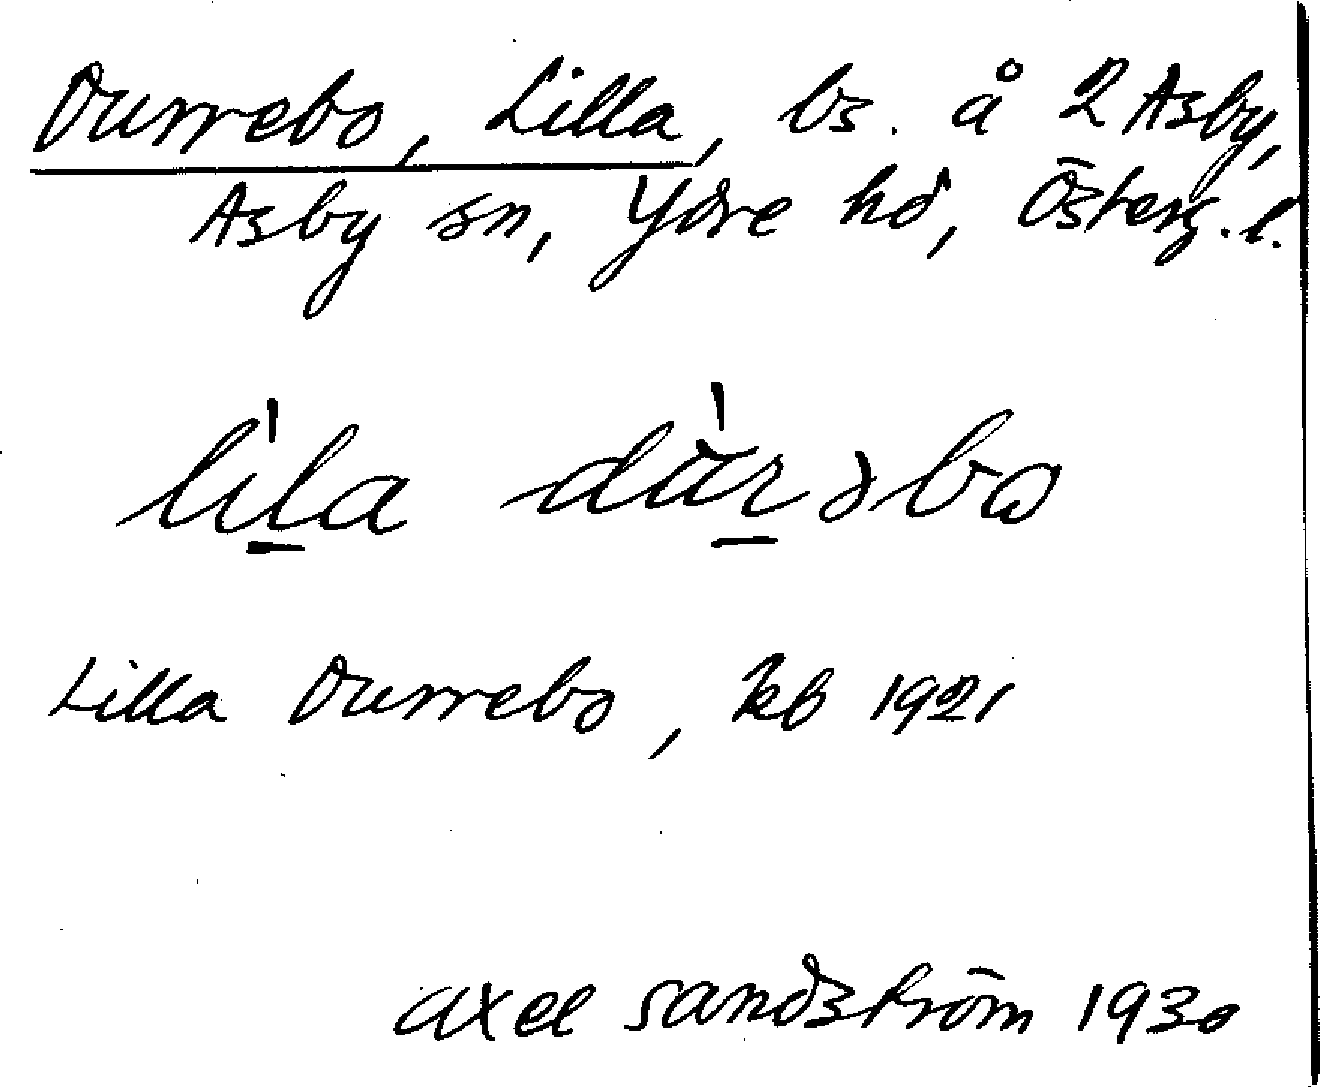 Durrebo, Lilla, bs. å 2 Asby,
Asby sn, Ydre hd, Österg. l.
lı̀la dùrəbo
Lilla Durrebo, kb 1921
Axel Sandström 1930